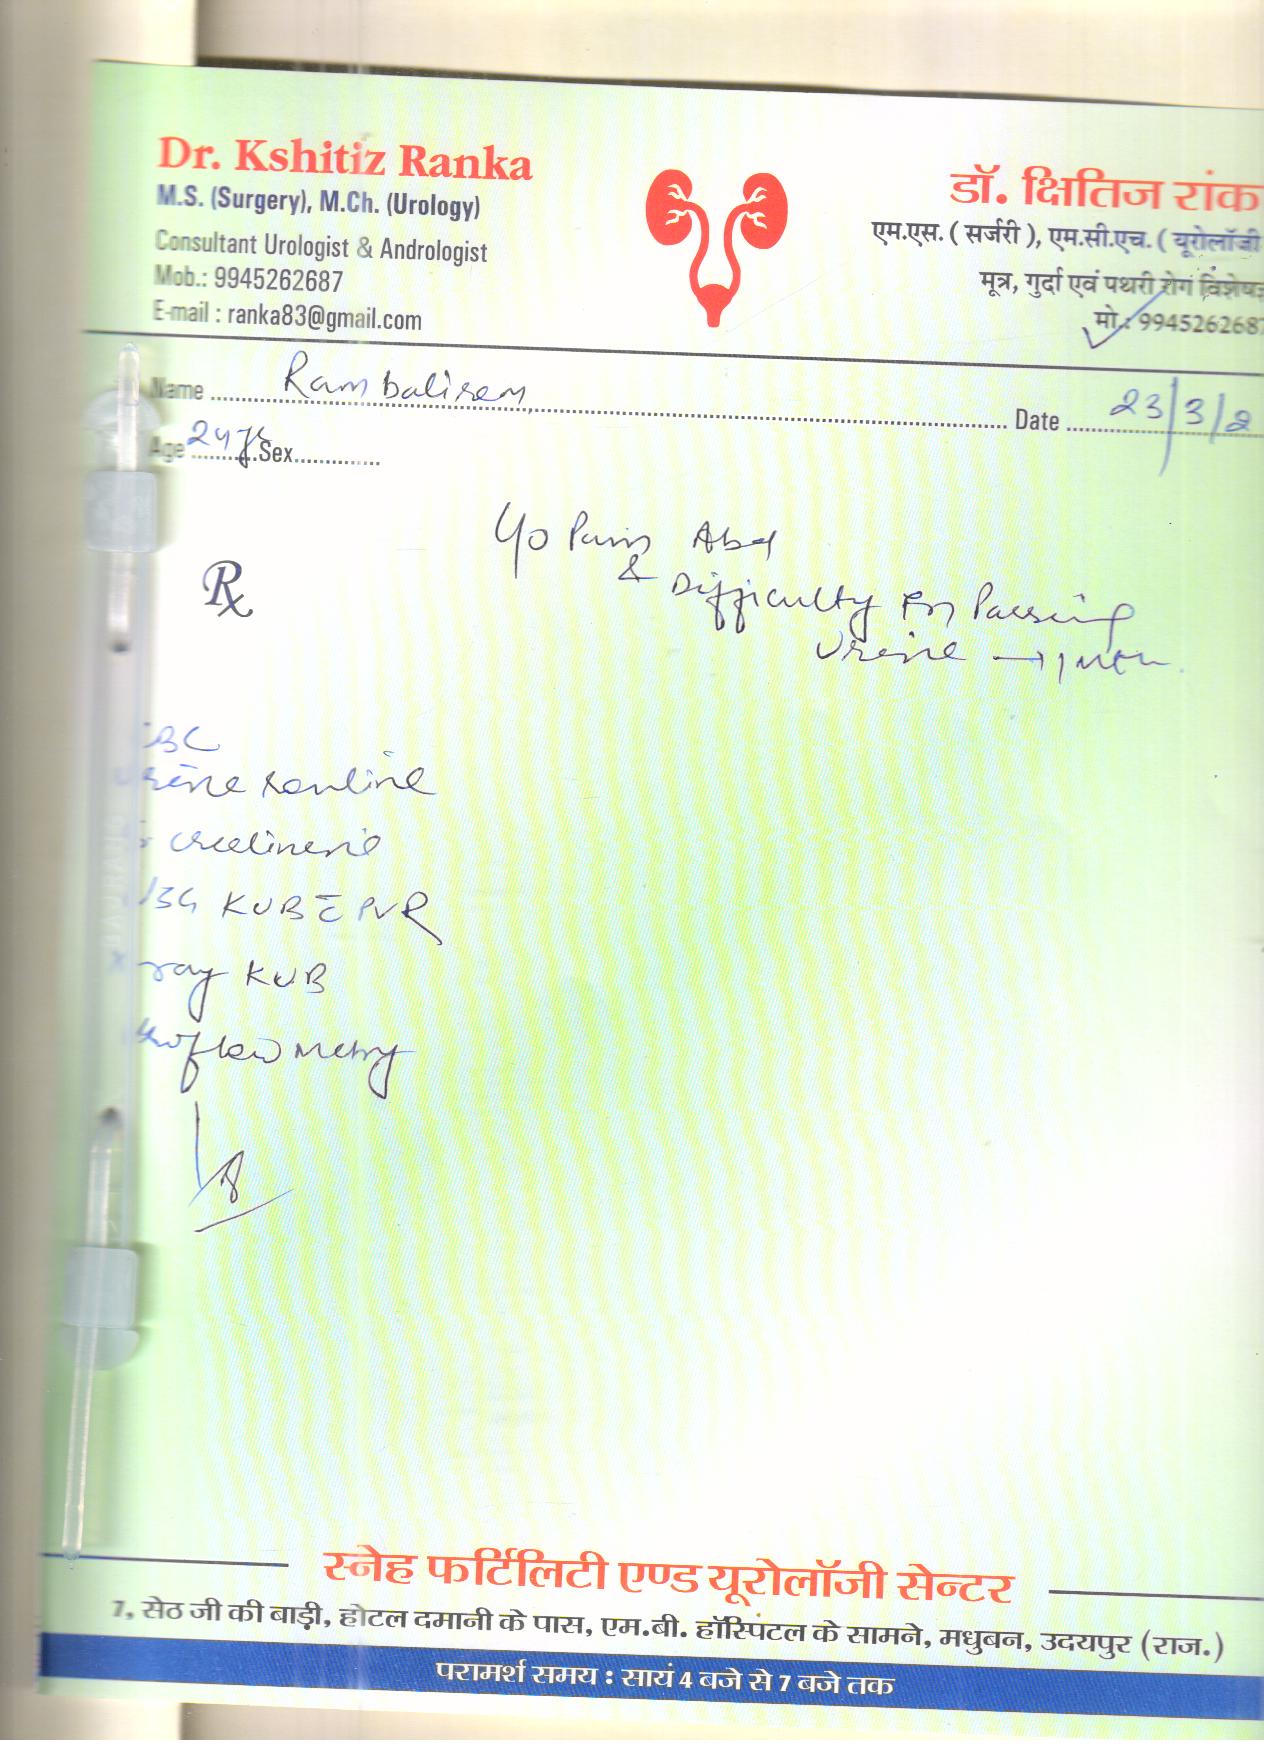 Dr. Kshitiz Ranka
M.S. (Surgery), M.Ch. (Urology)
Consultant Urologist & Andrologist
Mob.: 9945262687
E-mail : ranka83@gmail.com
डॉ. क्षितिज रांक
एम.एस. ( सर्जरी ), एम.सी.एच. ( यूरोलॉजी
मूत्र, गुर्दा एवं पथरी रोग विशेषज्ञ
मो.: 994526268
Name Ram Date 23/3/2
Age 24 Sex
Rx
Pain Abd
& Difficulty in Passing
Urine →1
BC
rine routine
creatinine
KUB c̄ PVR
x ray KUB
uroflowmetry
स्नेह फर्टिलिटी एण्ड यूरोलॉजी सेन्टर
7, सेठ जी की बाड़ी, होटल दमानी के पास, एम.बी. हॉस्पिटल के सामने, मधुबन, उदयपुर (राज.)
परामर्श समय : सायं 4 बजे से 7 बजे तक